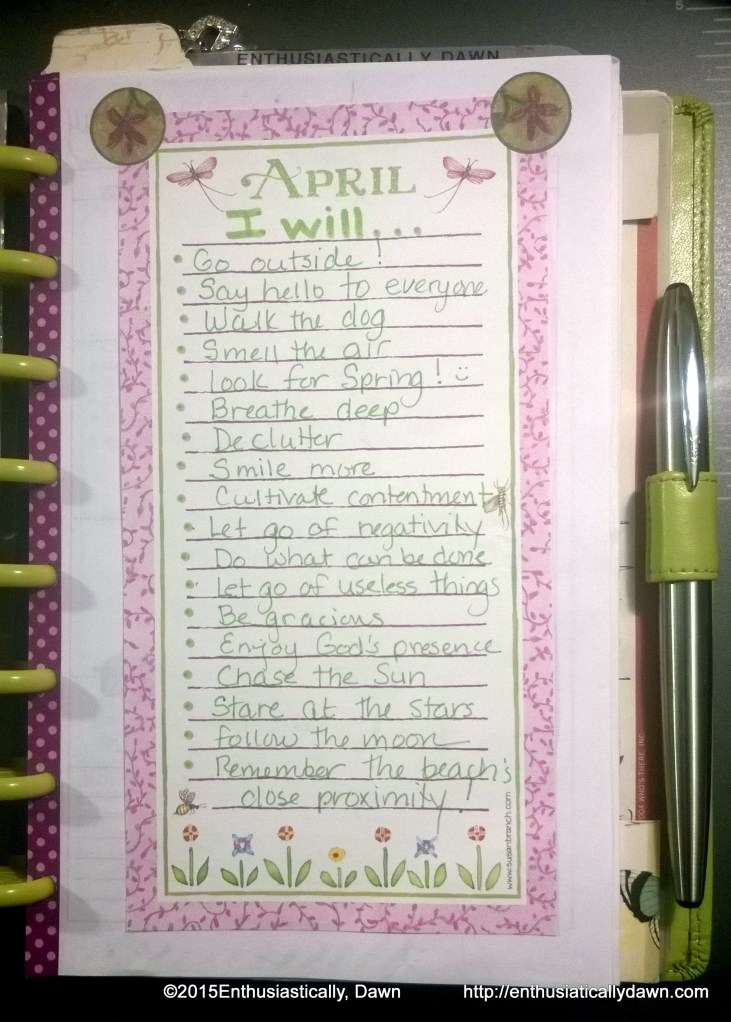 ENTHUSIASTICALLY DAWN
APRIL
I will...
Go outside!
Say hello to everyone
Walk the dog
Smell the air
Look for Spring!
Breathe deep
Declutter
Smile more
Cultivate contentment
Let go of negativity
Do what can be done
Let go of useless things
Be gracious
Enjoy God's presence
Chase the Sun
Stare at the stars
follow the moon
Remember the beach's
close proximity!
www.susanbranch.com
WHO'S THERE, INC.
©2015Enthusiastically, Dawn
http://enthusiaticallydawn.com